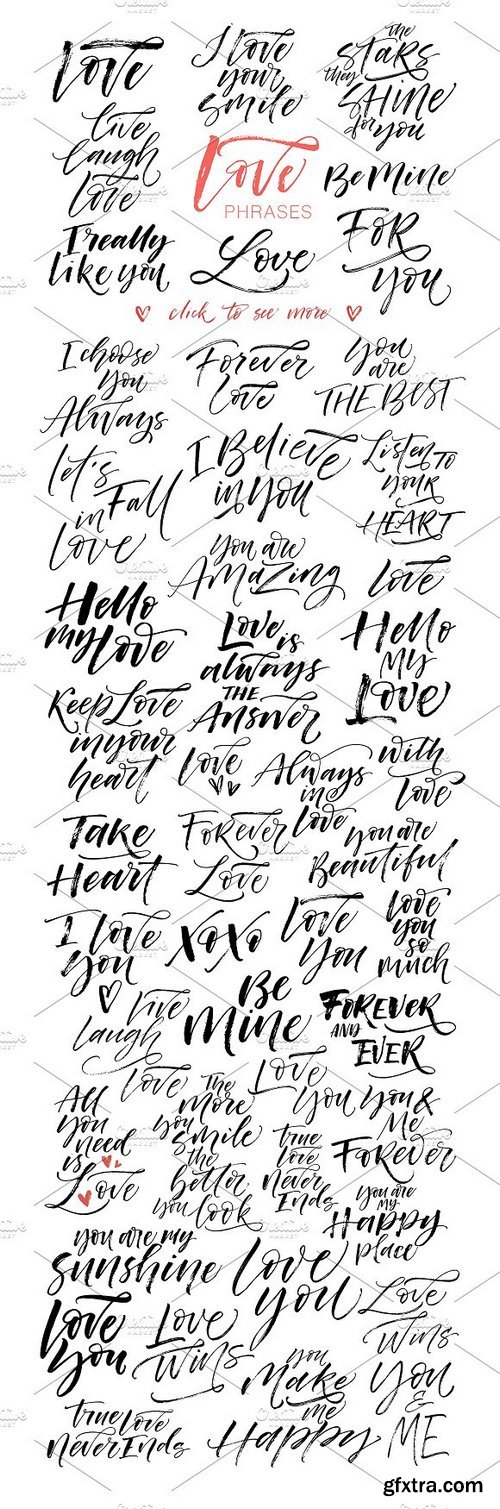 Love
I love
your
smile
the
stars
they
SHINE
for
you
live
laugh
love
Love
PHRASES
Be Mine
I really
like you
Love
FOR
you
click to see more
I choose
you
Always
Forever
love
you
are
THE BEST
let's
Fall
in
love
I Believe
in you
Listen to
your
HEART
you are
Amazing
love
Hello
my love
Love is
always
THE
Answer
Hello
MY
Love
Keep Love
in your
heart
love
Always
in
love
with
love
Take
Heart
Forever
Love
you are
Beautiful
I love
you
XOXO
love
you
love
you
so
much
live
laugh
love
Be
mine
FOREVER
AND
EVER
All
you
need
is
Love
the
more
you
smile
the
better
you look
Love
you
true
love
never
Ends
you &
Me
Forever
you are
my
Happy
place
you are my
sunshine
love
you
Love
wins
love
you
Love
wins
you
make
me
Happy
you
&
ME
true love
never Ends
gfxtra.com